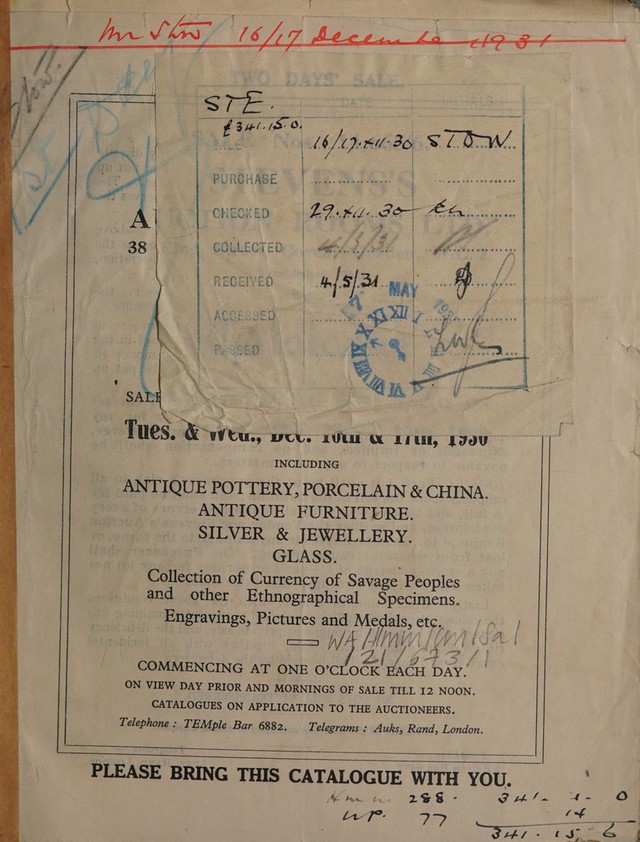 Mr Stow 16/17 December 1931
Stow.
TWO DAYS' SALE
STE.
£341.15.0.
16/17.XII.30 STOW
PURCHASE
CHECKED 29.XII.30
COLLECTED 4/5/31
RECEIVED 4/5/31
ACCESSED
PASSED
MAY
A
38
SALE
Tues. & Wed., Dec. 16th & 17th, 1930
INCLUDING
ANTIQUE POTTERY, PORCELAIN & CHINA.
ANTIQUE FURNITURE.
SILVER & JEWELLERY.
GLASS.
Collection of Currency of Savage Peoples
and other Ethnographical Specimens.
Engravings, Pictures and Medals, etc.
WA/HMM/CM/Sal
/21/673/1
COMMENCING AT ONE O'CLOCK EACH DAY.
ON VIEW DAY PRIOR AND MORNINGS OF SALE TILL 12 NOON.
CATALOGUES ON APPLICATION TO THE AUCTIONEERS.
Telephone : TEMple Bar 6882. Telegrams : Auks, Rand, London.
PLEASE BRING THIS CATALOGUE WITH YOU.
288. 341 - 1 - 0
77 14
341 - 15 - 6